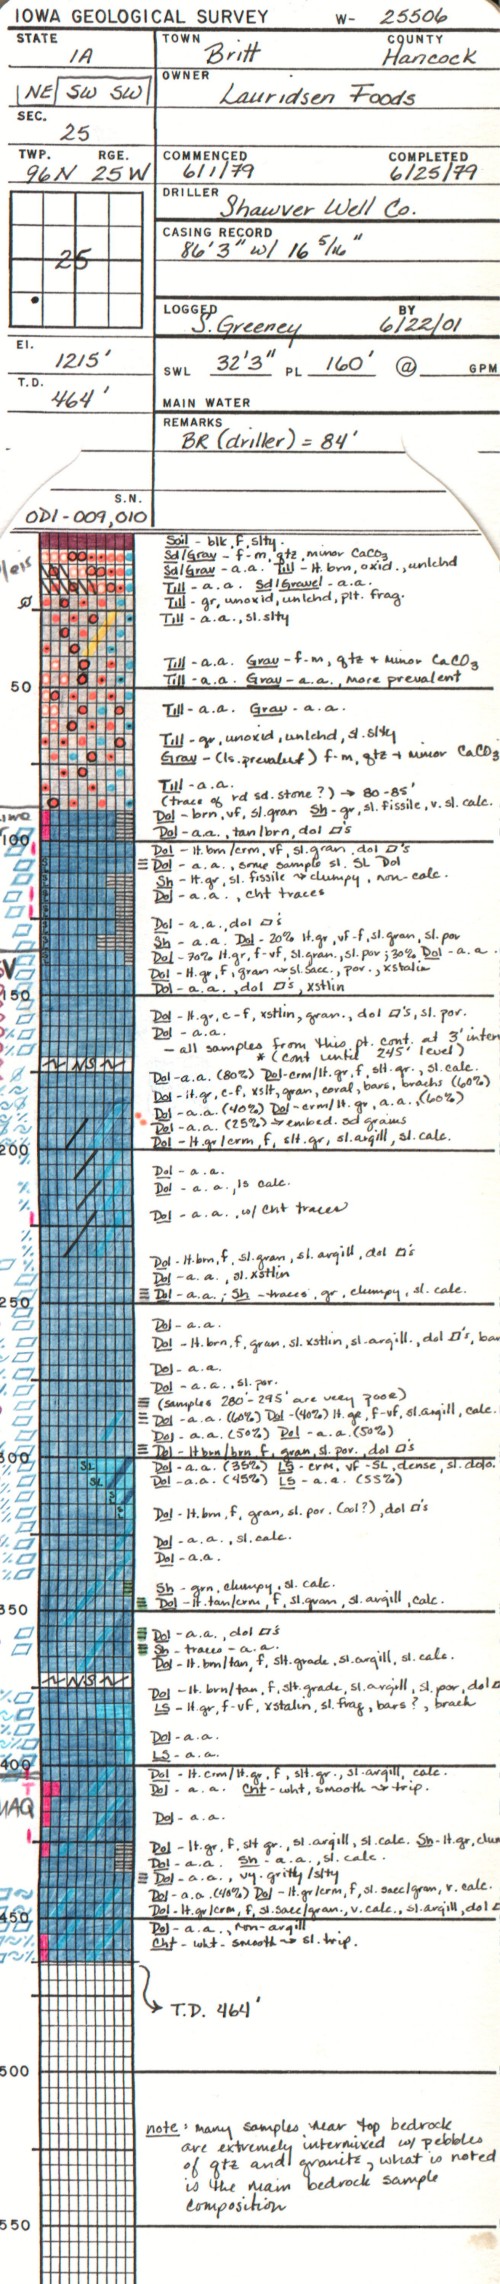 IOWA GEOLOGICAL SURVEY W- 25506
STATE IA
TOWN Britt
COUNTY Hancock
NE SW SW
OWNER Lauridsen Foods
SEC. 25
TWP. 96N RGE. 25W
COMMENCED 6/1/79
COMPLETED 6/25/79
DRILLER Shawver Well Co.
CASING RECORD 86'3" w/ 16 5/16"
25
LOGGED S. Greeney BY 6/22/01
El. 1215'
SWL 32'3" PL 160' @ GPM
T.D. 464'
MAIN WATER
REMARKS BR (driller) = 84'
S.N.
OD1-009,010
Soil - blk, f, slty.
Sd/Grav - f-m, qtz, minor CaCO3
Sd/Grav - a.a. Till - lt. brn, oxid., unlchd
Till - a.a. Sd/Gravel - a.a.
Till - gr, unoxid, unlchd, plt. frag.
Till - a.a., sl. slty
Till - a.a. Grav - f-m, qtz + minor CaCO3
50
Till - a.a. Grav - a.a., more prevalent
Till - a.a. Grav - a.a.
Till - gr, unoxid, unlchd, sl. slty
Grav - (ls. prevalent) f-m, qtz + minor CaCO3
Till - a.a.
(trace of rd sd. stone?) → 80-85'
Dol - brn, vf, sl. gran Sh - gr, sl. fissile, v. sl. calc.
Dol - a.a., tan/brn, dol ▱'s
100
Dol - lt. brn/crm, vf, sl. gran, dol ▱'s
Dol - a.a., some sample sl. SL Dol
Sh - lt. gr, sl. fissile → clumpy, non-calc.
Dol - a.a., cht traces
Dol - a.a., dol ▱'s
Sh - a.a. Dol - 20% lt. gr, vf-f, sl. gran, sl. por
Dol - 70% lt. gr, vf-f, sl. gran, sl. por; 30% Dol - a.a.
Dol - lt. gr, f, gran → sl. sacc., por., xstalin
150
Dol - a.a., dol ▱'s, xstlin
Dol - lt. gr, c-f, xstlin, gran., dol ▱'s, sl. por.
Dol - a.a.
- all samples from this pt. cont. at 3' inten
* (cont until 245' level)
NS
Dol - a.a. (80%) Dol - crm/lt. gr, f, slt. gr., sl. calc.
Dol - lt. gr, c-f, xslt, gran, coral, bars, brachs (60%)
Dol - a.a. (40%) Dol - crm/lt. gr, a.a., (60%)
Dol - a.a. (25%) → embed. sd grains
Dol - lt. gr/crm, f, slt. gr, sl. argill, sl. calc.
200
Dol - a.a.
Dol - a.a., ls calc.
Dol - a.a., w/ cht traces
Dol - lt. brn, f, sl. gran, sl. argill, dol ▱'s
Dol - a.a., sl. xstlin
Dol - a.a., Sh - traces, gr, clumpy, sl. calc.
250
Dol - a.a.
Dol - lt. brn, f, gran, sl. xstlin, sl. argill., dol ▱'s, bar
Dol - a.a.
Dol - a.a., sl. por.
(samples 280'-295' are very poor)
Dol - a.a. (60%) Dol - (40%) lt. gr, f-vf, sl. argill, calc.
Dol - a.a. (50%) Dol - a.a. (50%)
Dol - lt brn/brn, f, gran, sl. por., dol ▱'s
300
Dol - a.a. (35%) LS - crm, vf - SL, dense, sl. dolo.
Dol - a.a. (45%) LS - a.a. (55%)
SL
SL
Dol - lt. brn, f, gran, sl. por. (ool?), dol ▱'s
Dol - a.a., sl. calc.
Dol - a.a.
Sh - grn, clumpy, sl. calc.
350
Dol - lt. tan/crm, f, sl. gran, sl. argill, calc.
Dol - a.a., dol ▱'s
Sh - traces - a.a.
Dol - lt. brn/tan, f, slt. grade, sl. argill, sl. calc.
NS
Dol - lt. brn/tan, f, slt. grade, sl. argill, sl. por, dol
LS - lt. gr, f-vf, xstalin, sl. frag, bars?, brach
Dol - a.a.
LS - a.a.
400
Dol - lt. crm/lt. gr, f, slt. gr., sl. argill, calc.
Dol - a.a. Cht - wht, smooth → trip.
MAQ
Dol - a.a.
Dol - lt. gr, f, slt gr., sl. argill, sl. calc. Sh - lt. gr, clum
Dol - a.a. Sh - a.a., sl. calc.
Dol - a.a., vy. gritty/slty
Dol - a.a. (40%) Dol - lt. gr/crm, f, sl. sacc/gran, v. calc.
Dol - lt. gr/crm, f, sl. sacc/gran., v. calc., sl. argill, dol
450
Dol - a.a., non-argill
Cht - wht - smooth → sl. trip.
T.D. 464'
500
note: many samples near top bedrock
are extremely intermixed w/ pebbles
of qtz and granite, what is noted
is the main bedrock sample
composition
550